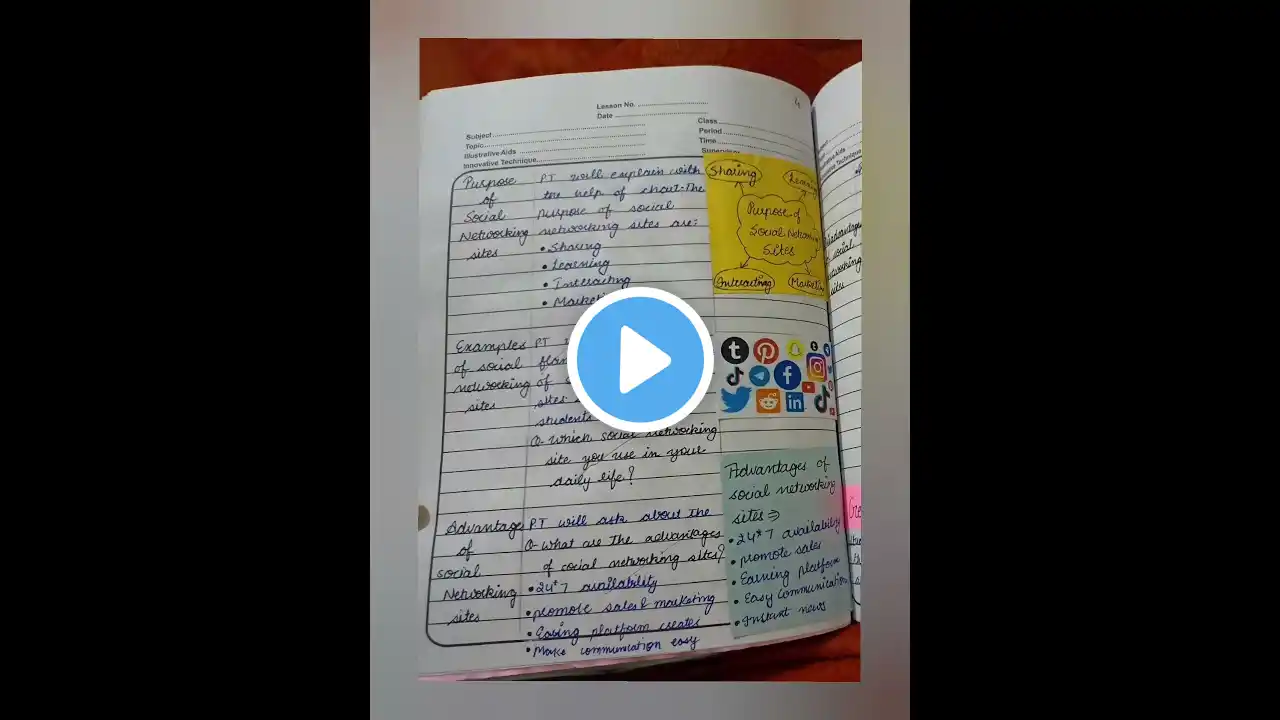 4
Lesson No.
Date
Subject
Topic
Illustrative Aids
Innovative Technique
Class
Period
Time
Supervisor
Purpose
of
Social
Networking
sites
PT will explain with
the help of chart. The
purpose of social
networking sites are:
• Sharing
• Learning
• Interacting
Sharing
Learning
Purpose of
Social Networking
Sites
Interacting
Examples
of social
networking
sites
PT
of
sites
students
Q- Which social networking
site you use in your
daily life?
Advantages
of
social
Networking
sites
PT will ask about the
Q- what are the advantages
of social networking sites?
• 24*7 availability
• promote sales & marketing
• platform creates
• Make communication easy
Advantages of
social networking
sites ⇒
• 24*7 availability
• promote sales
• Earning platform
• Easy communication
• Instant news